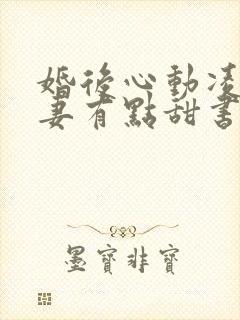 婚後心動凌
妻有點甜書
墨寶非寶